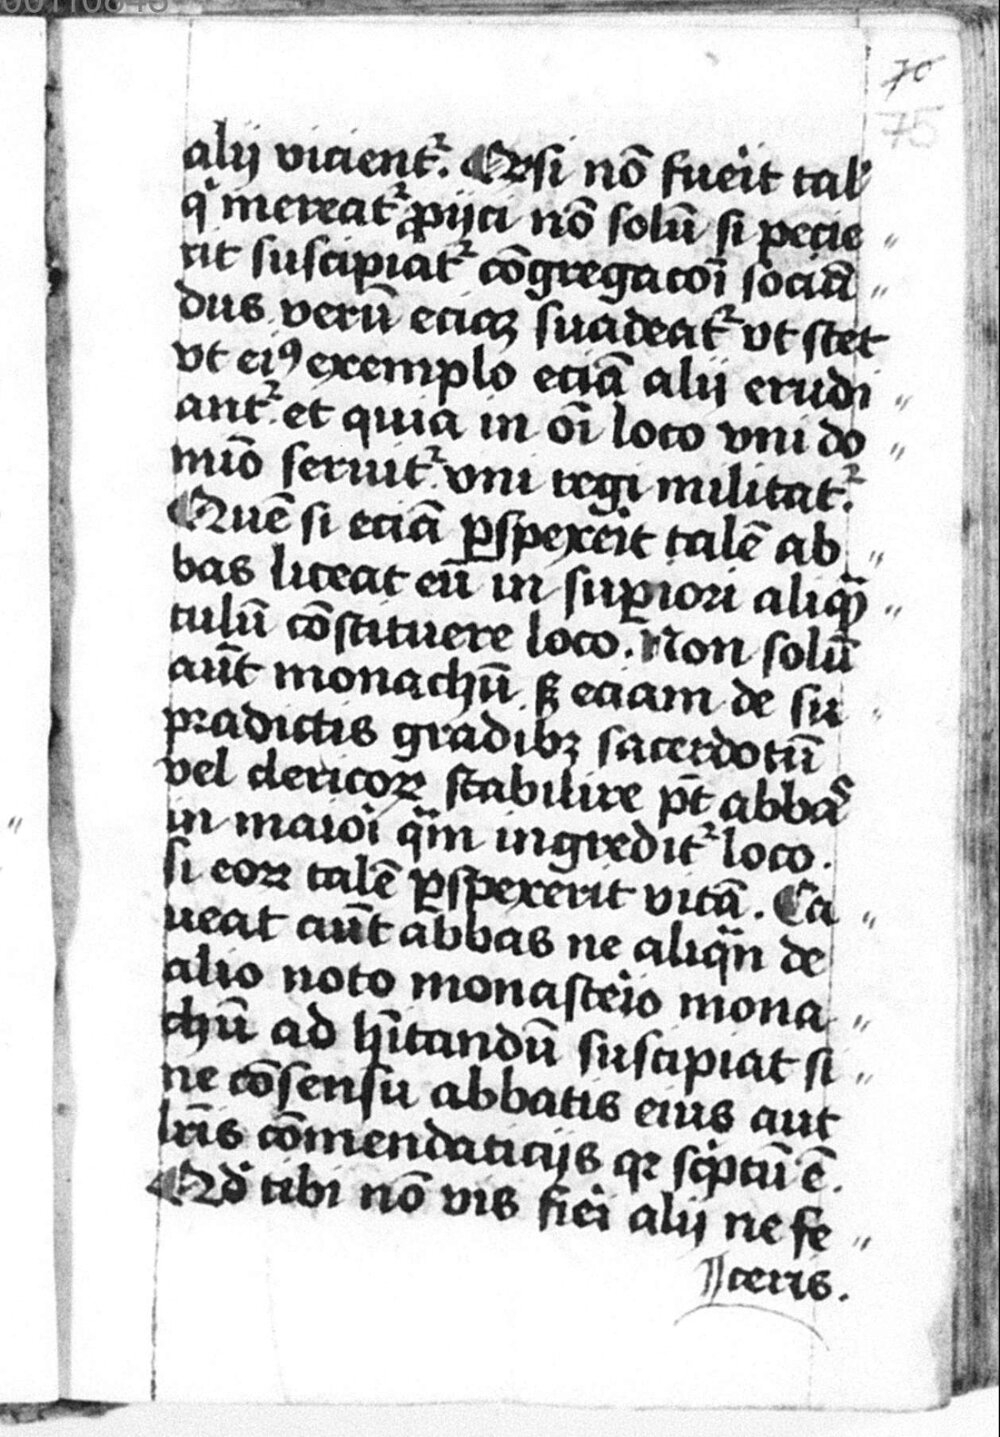 00110843
70
75
alij vicient᷑. Qꝛsi nō fueͥit tal'
qͥ mereat᷑ ꝓijci nō solū si pecie „
rit suscipiat᷑ cōgregacoī sociā „
dus verū eciaꝫ suadeat᷑ vt stet
vt eiꝯ exemplo eciā alij erudi „
ant᷑. et quia in oī loco vni do „
mīo seruit᷑ vni regi militat᷑.
Quē si eciā ꝑspexeͥit talē ab „
bas liceat eū in suꝑiori aliqͣ „
tulū cōstituere loco. Non solū
aūt monachū sꝫ eciam de su „
pradictis gradibꝫ sacerdotū
vel clericoꝝ stabilire pt̄ abbas
in maioͥi qͣm ingredit᷑ loco.
si eoꝝ talē ꝑspexerit vitā. Ca „
ueat aūt abbas ne aliqn̄ de
alio noto monasteͥio mona „
chū ad hītandū suscipiat si „
ne cōsensu abbatis eius aut
lr̄is cōmendaticijs qꝛ scͥptū ē.
Qd̓ tibi nō vis fieͥi alij ne fe „
ceris.